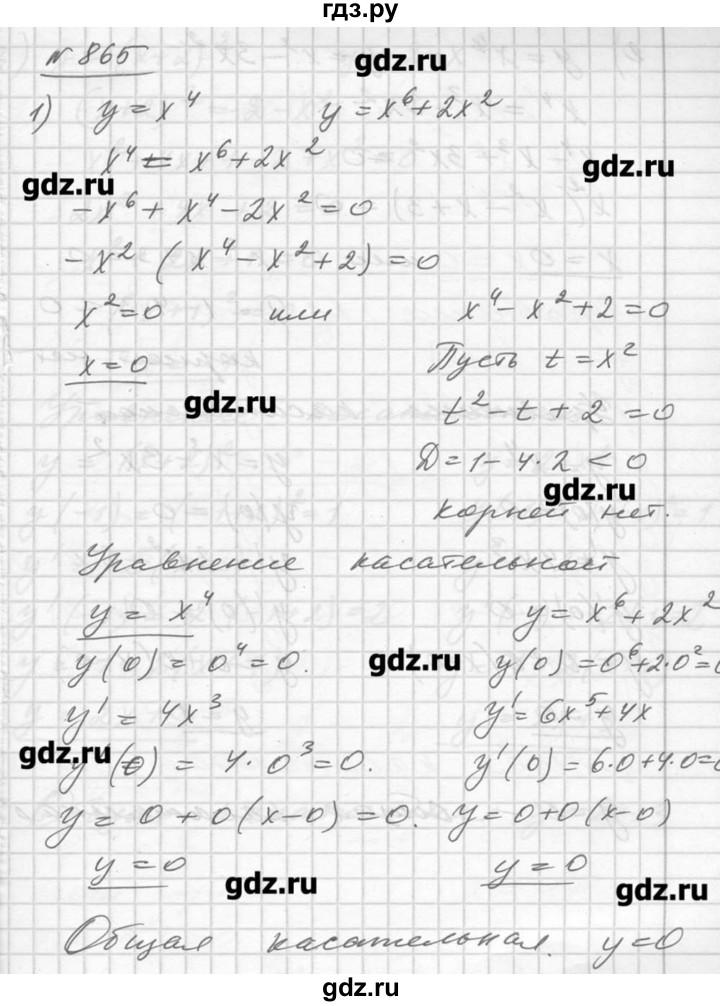 гдз.ру
№ 865
gdz.ru
1) y = x⁴ y = x⁶ + 2x²
x⁴ = x⁶ + 2x²
gdz.ru
gdz.ru
- x⁶ + x⁴ - 2x² = 0
- x² ( x⁴ - x² + 2) = 0
x² = 0 или x⁴ - x² + 2 = 0
x = 0 Пусть t = x²
gdz.ru
t² - t + 2 = 0
D = 1 - 4·2 < 0
gdz.ru
корней нет.
Уравнение касательной
y = x⁴ y = x⁶ + 2x²
y(0) = 0⁴ = 0. gdz.ru y(0) = 0⁶ + 2·0² = 0
y' = 4x³ y' = 6x⁵ + 4x
gdz.ru
y'(0) = 4·0³ = 0. y'(0) = 6·0 + 4·0 = 0
y = 0 + 0(x - 0) = 0. y = 0 + 0(x - 0)
y = 0 y = 0
gdz.ru gdz.ru
Общая касательная. y = 0
гдз.ру